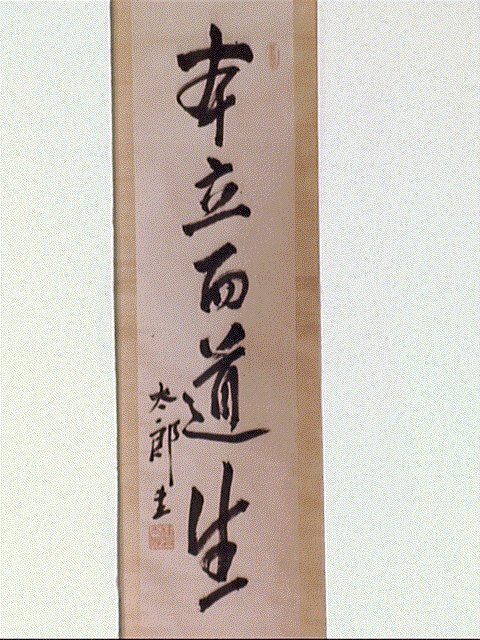 本立而道生
太郎書